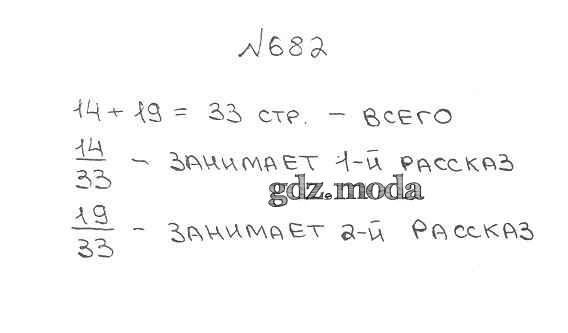 №682
14 + 19 = 33 стр. – всего
14/33 – занимает 1-й рассказ
gdz.moda
19/33 – занимает 2-й рассказ